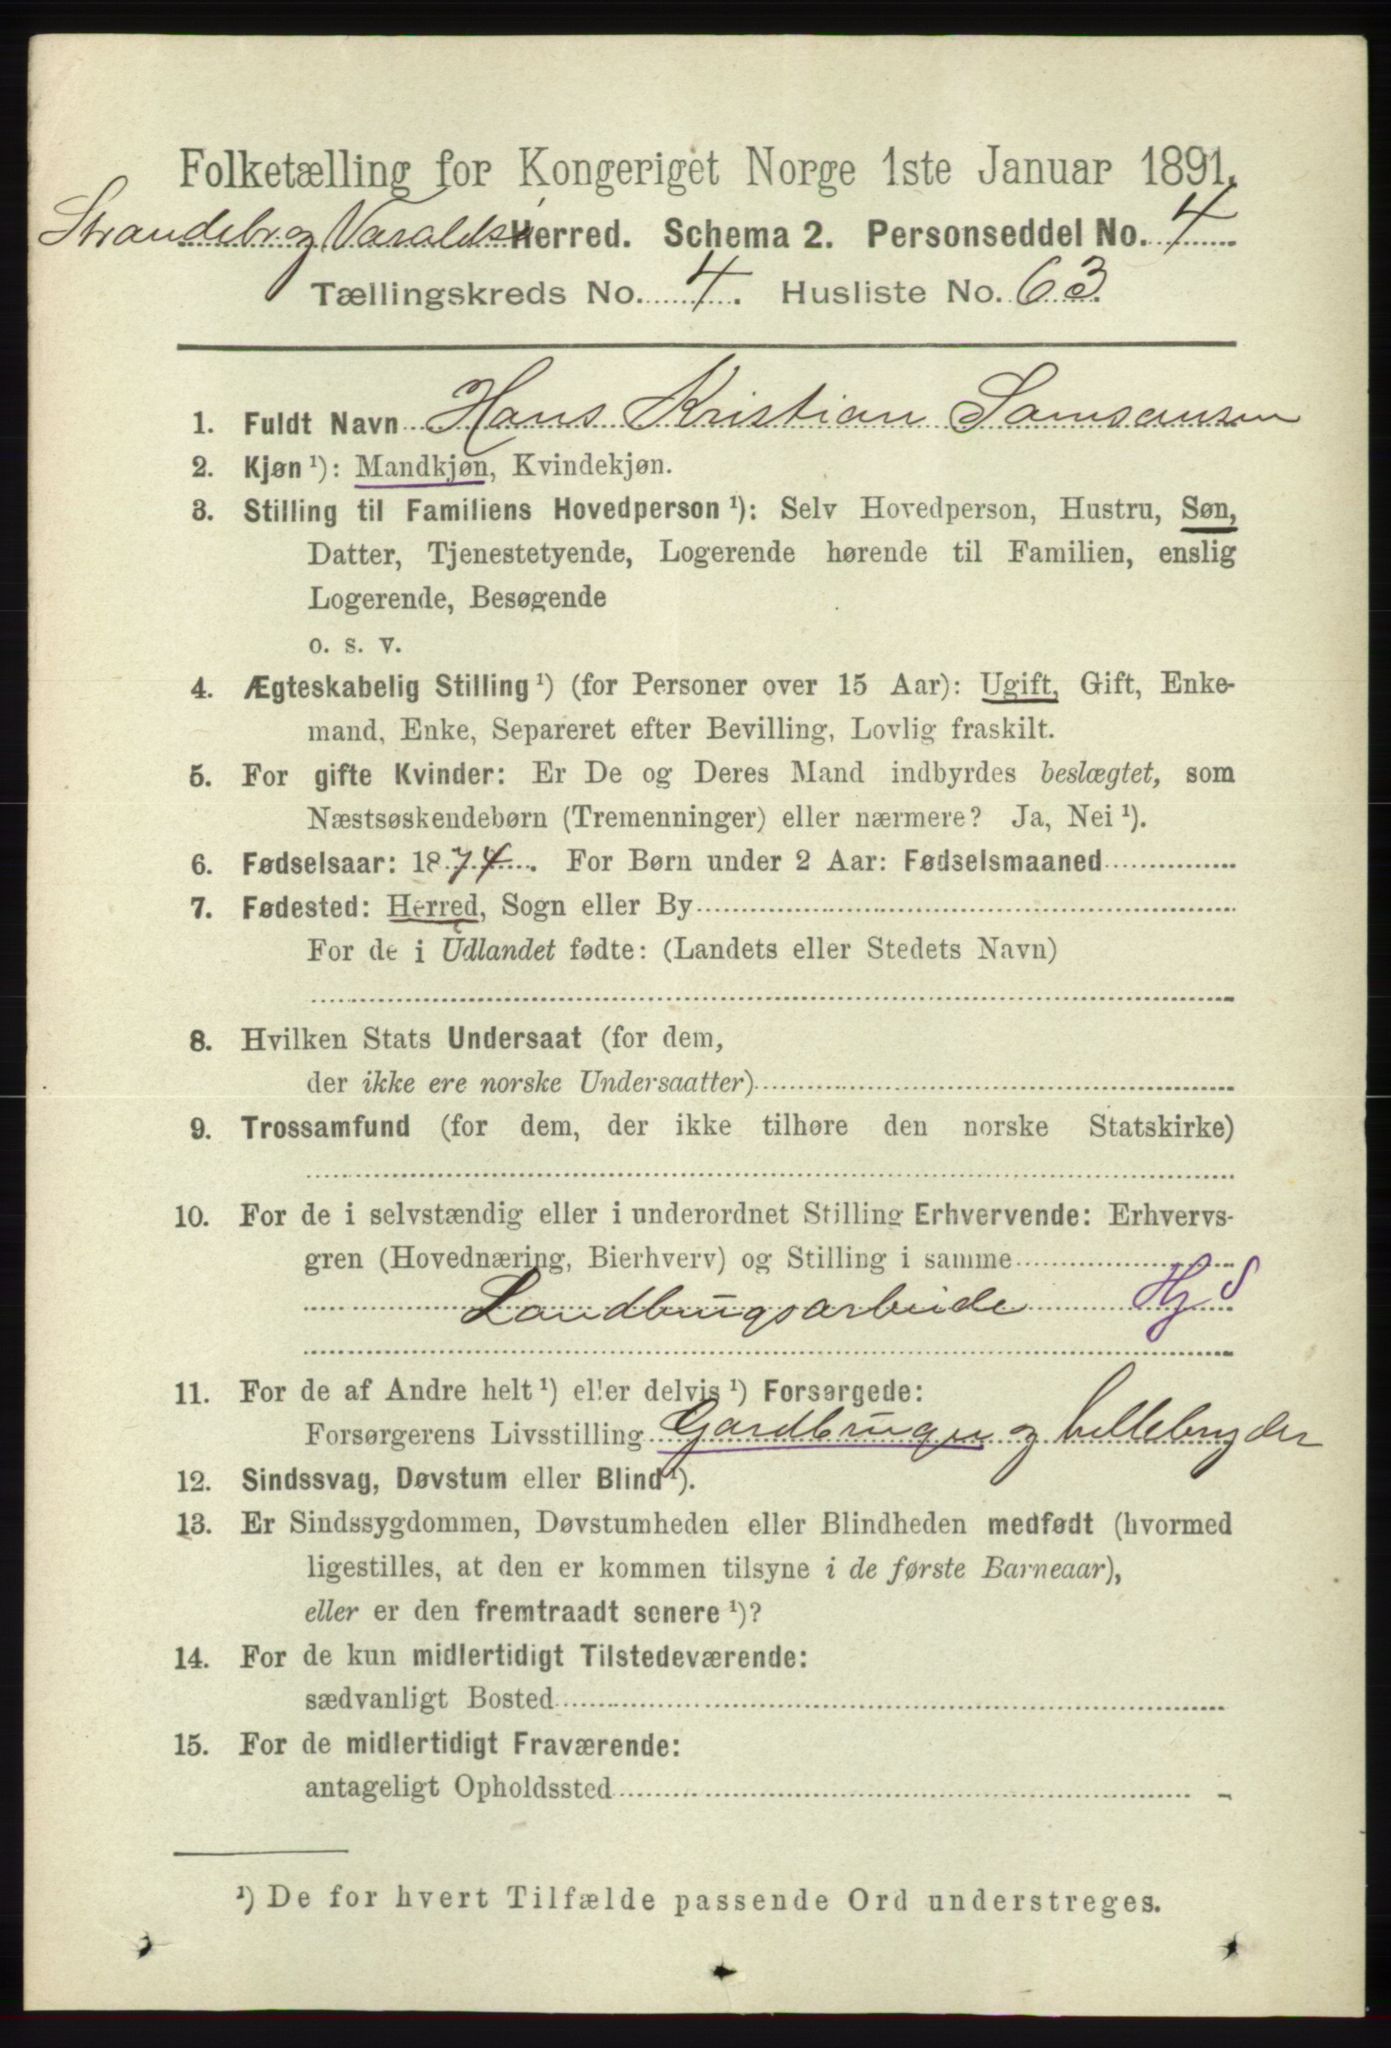 Folketælling for Kongeriget Norge 1ste Januar 1891.
Strandeb. og Varaldsø Herred. Schema 2. Personseddel No. 4
Tællingskreds No. 4. Husliste No. 63.
1. Fuldt Navn Hans Kristian Samsonsen
2. Kjøn¹): Mandkjøn, Kvindekjøn.
3. Stilling til Familiens Hovedperson¹): Selv Hovedperson, Hustru, Søn,
Datter, Tjenestetyende, Logerende hørende til Familien, enslig
Logerende, Besøgende
o. s. v.
4. Ægteskabelig Stilling¹) (for Personer over 15 Aar): Ugift, Gift, Enke-
mand, Enke, Separeret efter Bevilling, Lovlig fraskilt.
5. For gifte Kvinder: Er De og Deres Mand indbyrdes beslægtet, som
Næstsøskendebørn (Tremenninger) eller nærmere? Ja, Nei¹).
6. Fødselsaar: 1874. For Børn under 2 Aar: Fødselsmaaned
7. Fødested: Herred, Sogn eller By
For de i Udlandet fødte: (Landets eller Stedets Navn)
8. Hvilken Stats Undersaat (for dem,
der ikke ere norske Undersaatter)
9. Trossamfund (for dem, der ikke tilhøre den norske Statskirke)
10. For de i selvstændig eller i underordnet Stilling Erhvervende: Erhvervs-
gren (Hovednæring, Bierhverv) og Stilling i samme
Landbrugsarbeide Hj S
11. For de af Andre helt¹) eller delvis¹) Forsørgede:
Forsørgerens Livsstilling Gardbruger og hellebryder
12. Sindssvag, Døvstum eller Blind¹).
13. Er Sindssygdommen, Døvstumheden eller Blindheden medfødt (hvormed
ligestilles, at den er kommen tilsyne i de første Barneaar),
eller er den fremtraadt senere¹)?
14. For de kun midlertidigt Tilstedeværende:
sædvanligt Bosted
15. For de midlertidigt Fraværende:
antageligt Opholdssted
¹) De for hvert Tilfælde passende Ord understreges.